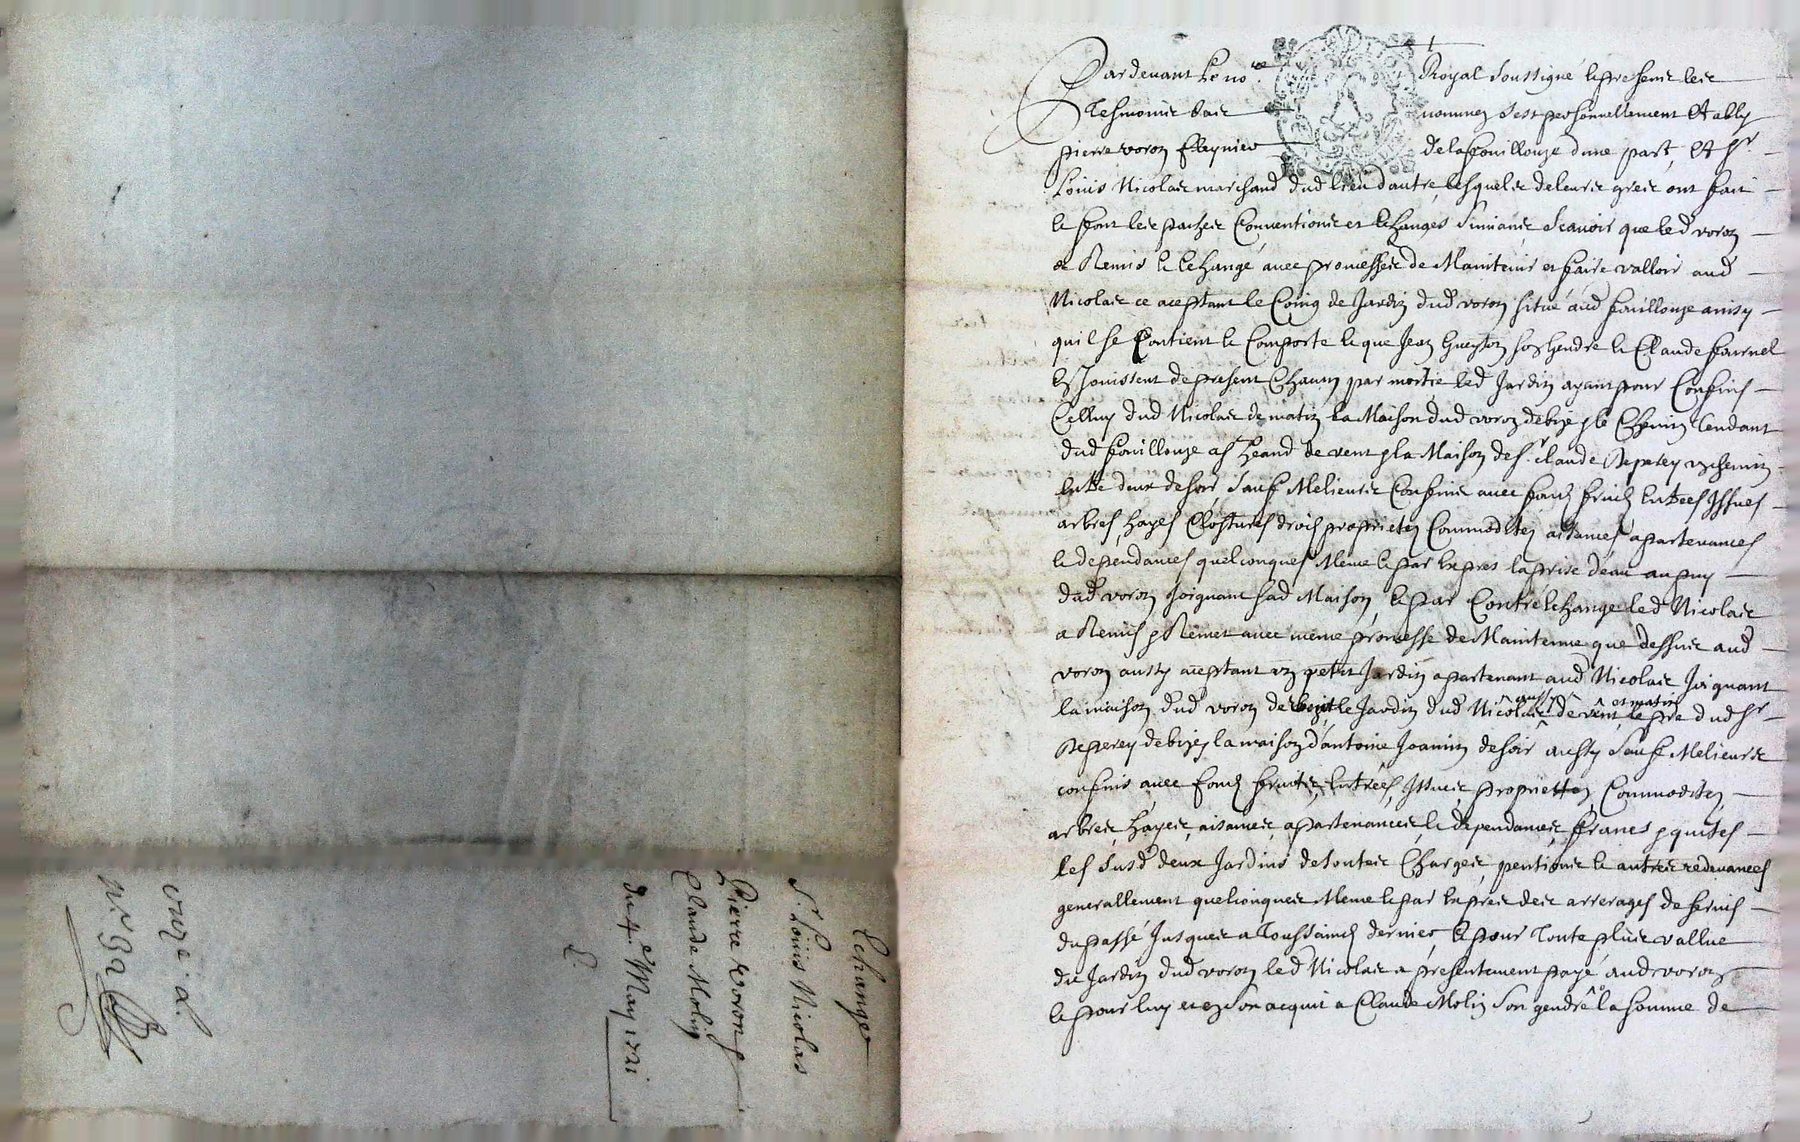 Echange
Sr Louis Nicolas
Pierre Voron
Claude Molin
du 4e May 1721
Pardevant le nore Royal soussigné le presens les
tesmoins bas nommez s'est personnellement establly
pierre voron de lafouillouze dune part, et sr
Louis Nicolas marchand dud lieu dautre, lesquels de leurs grés ont fait
le font les pactes Conventions et eChanges suivans scavoir que led voron
a Remis le eChangé avec promesses de Maintenir et faire valloir aud
Nicolas ce aceptant le Coing de Jardin dud voron situé aud fouillouze ainsy
quil se Contient le Comporte le que Jean son gendre le Claude fournel
en Jouissent de present Chacun par moitié led Jardin ayant pour Confins
Celluy dud Nicolas de matin la Maison dud voron de bize, le Chemin tendant
dud fouillouze de vent, la Maison de sr Claude Reperey un chemin
entre deux de soir sauf Melieurs Confins avec fonds fruits entrées Issues
arbres hayes Clostures droits proprietez Commoditez aisances apartenances
le dependances quelconques Meme le par expres laprise deau au puy
dud voron Joignant sad Maison, le par Contre eChange led Nicolas
a Remis Remet avec meme promesse de Maintenue que dessus aud
voron aussy aceptant un petit Jardin apartenant aud Nicolas Joignant
la maison dud voron de le Jardin dud Nicolas aussy de vent et matin le pré dud sr
Reperey de bize, la maison dantoine Joanin de soir aussy sauf Melieurs
confins avec fonds fruits, Entrées, Issues, proprietez, Commoditez
arbres, hayes, aisances, apartenances, le dependances francs quites
les susd deux Jardins de toutes Charges, pentions le autres redevances
generallement quelconques Meme le par exprés des arrerages de servis
du passé Jusques a Toussaincts dernier, le pour Toute plus vallue
du Jardin dud voron led Nicolas a presentement payé aud voron
le pour luy et en son acquit a Claude Molin son gendre la somme de